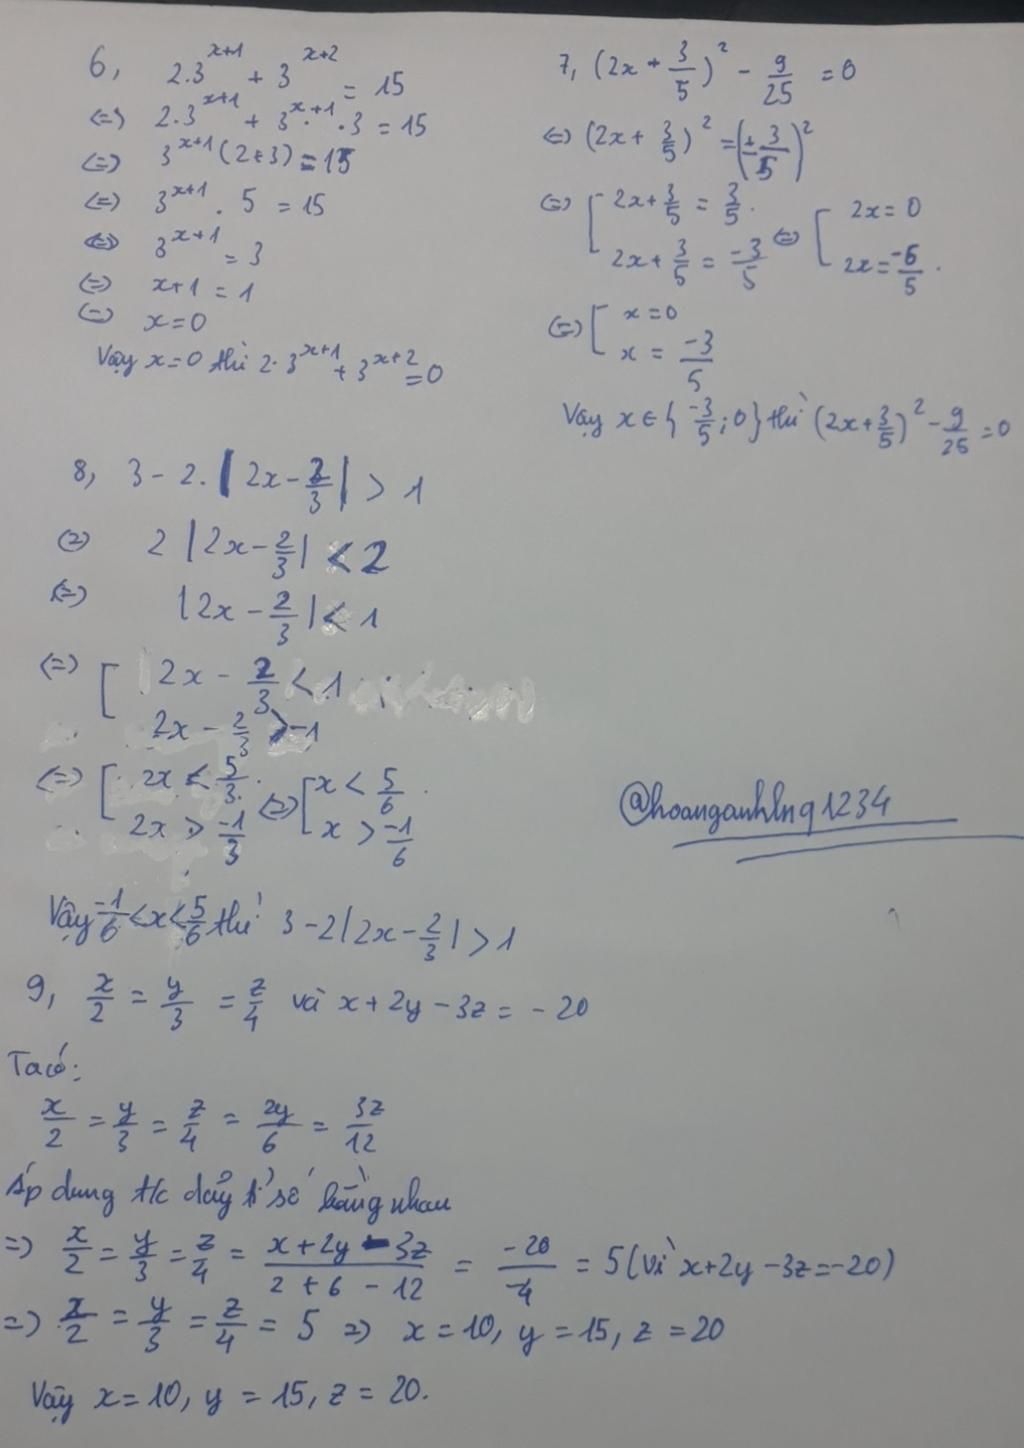 6, 2.3^{x+1} + 3^{x+2} = 15
(=) 2.3^{x+1} + 3^{x+1}.3 = 15
(=) 3^{x+1}(2+3) = 15
(=) 3^{x+1}.5 = 15
(=) 3^{x+1} = 3
(=) x+1 = 1
(=) x=0
Vậy x=0 thì 2.3^{x+1} + 3^{x+2} = 0
7, (2x + 3/5)^2 - 9/25 = 0
(=) (2x + 3/5)^2 = (± 3/5)^2
(=) [ 2x + 3/5 = 3/5. (=) [ 2x = 0
2x + 3/5 = -3/5 2x = -6/5.
(=) [ x = 0
x = -3/5
Vậy x ∈ { -3/5 ; 0 } thì (2x + 3/5)^2 - 9/25 = 0
8, 3 - 2.|2x - 2/3| > 1
(=) 2|2x - 2/3| < 2
(=) |2x - 2/3| < 1
(=) [ 2x - 2/3 < 1
2x - 2/3 > -1
(=) [ 2x < 5/3. (=) [ x < 5/6.
2x > -1/3 x > -1/6
Vậy -1/6 < x < 5/6 thì 3 - 2|2x - 2/3| > 1
@hoanganhlnq1234
9, x/2 = y/3 = z/4 và x + 2y - 3z = -20
Ta có:
x/2 = y/3 = z/4 = 2y/6 = 3z/12
Áp dụng t/c dãy tỉ số bằng nhau
=) x/2 = y/3 = z/4 = (x + 2y - 3z)/(2 + 6 - 12) = -20/-4 = 5 (vì x+2y-3z=-20)
=) x/2 = y/3 = z/4 = 5 =) x = 10, y = 15, z = 20
Vậy x = 10, y = 15, z = 20.